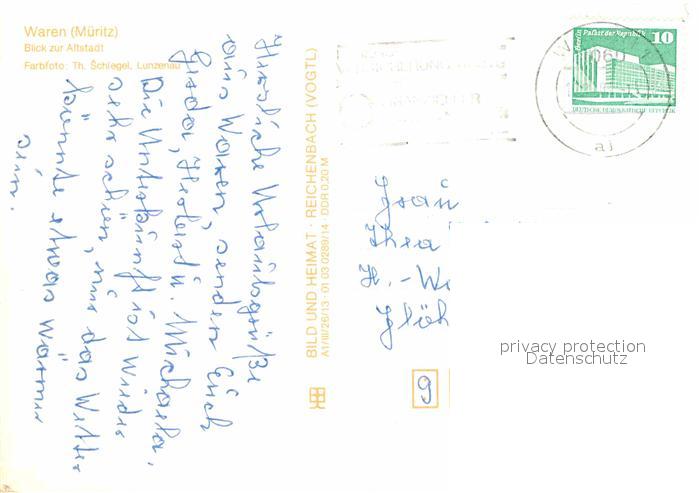 Waren (Müritz)
Blick zur Altstadt
Farbfoto: Th. Schlegel, Lunzenau
Herzliche Urlaubsgrüße
aus Waren, senden Euch
Gerda, Herbert u. Michaela.
Die Unterkunft ist wieder
sehr schön, nur das Wetter
könnte etwas wärmer
sein.
BILD UND HEIMAT · REICHENBACH (VOGTL)
A1/III/26/13 · 01 03 0289/14 · DDR 0,20 M
Berlin Palast der Republik
10
DEUTSCHE DEMOKRATISCHE REPUBLIK
W
2060
aj
Frau
Thea
H.-We
9
privacy protection
Datenschutz